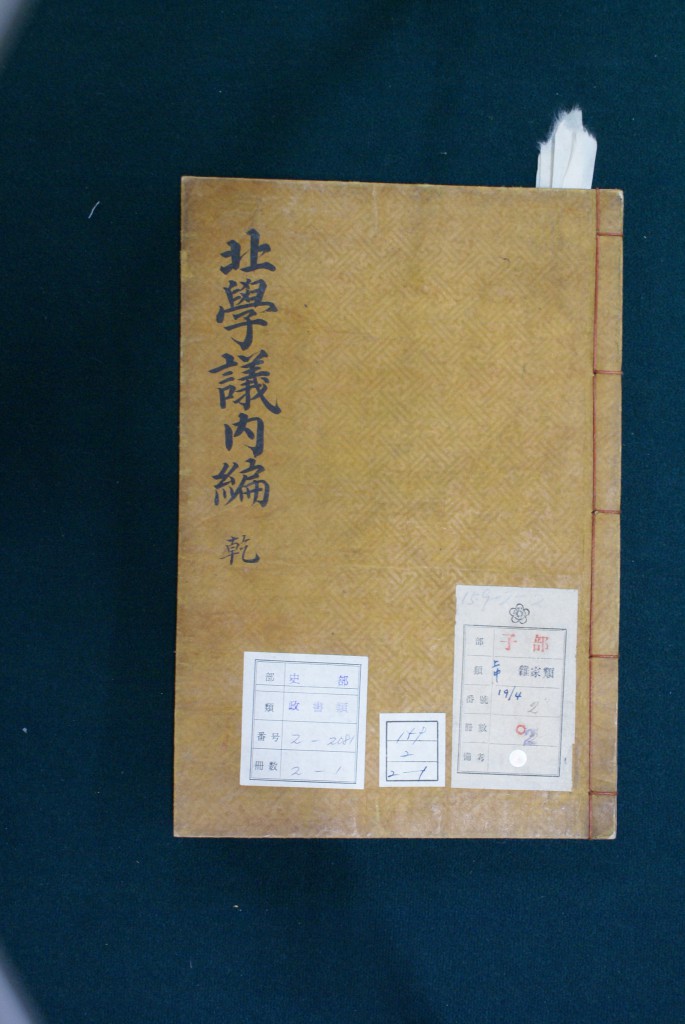 北學議內編
乾
部 史部
類 政書類
番号 2-2081
冊数 2-1
149
2
2-1
部 子部
類 儒家類
番號 19/4
2
冊數
備考